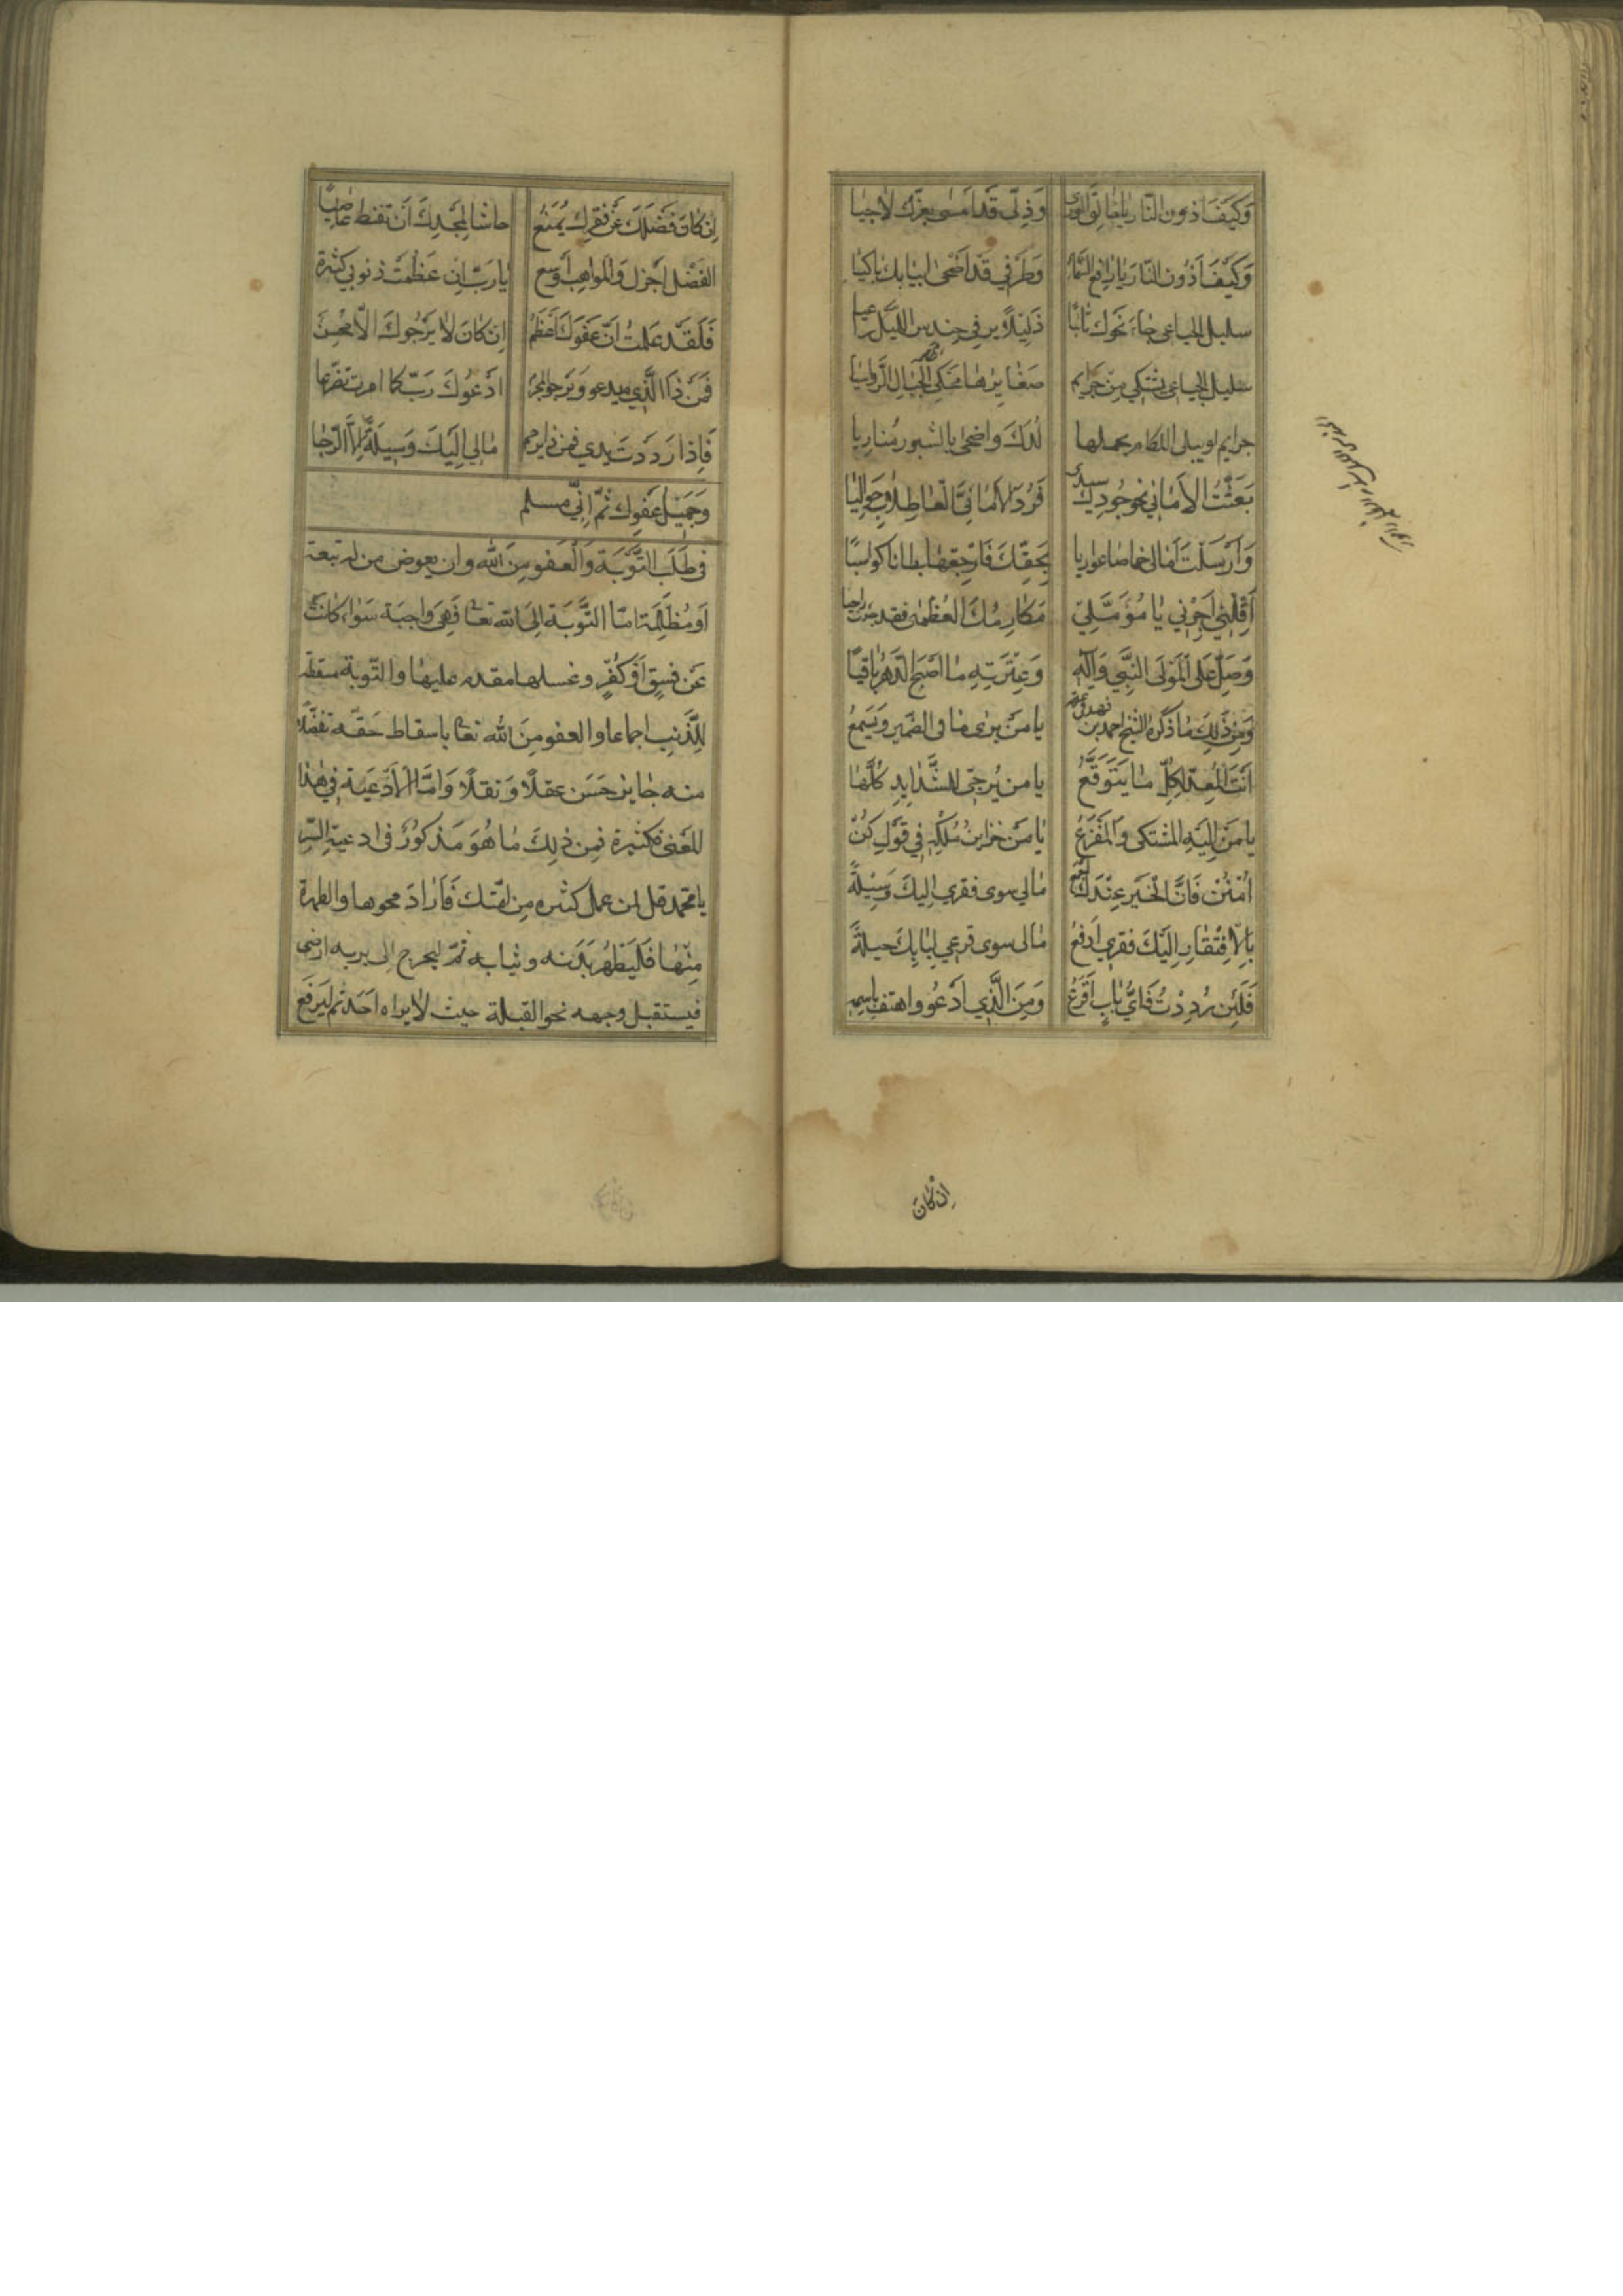 وَكَيْفَ اَذوُن النّار يا خالِق الورى وَذِلّى قد امسى بعزّك لاجيا
وَكَيْفَ اَذُون النّار يا رافِع السّما وَطَرْفي قَد اَضْحى لبابك باكيا
سليل الجباعى جاءَ نَحْوك تائبًا ذَليلاً
سليل الجباعى يشتكي مِن جرايم صَغايرها تحكى الجِبال الرّواسيا
جرايم لو يبلى اللكام بحملها لدكّ واضحى بالثبور مُناديا
بَعَثْتُ الأمَاني نحو جُودِك سيدي فَرُدّ الأمَانيّ العَاطِلاتِ حَوالِيا
وَاَرْسَلتَ اَمالى خماصا عواريا بِحَقّك فَارْجِعْها بطانا كواسيًا
اَقِلْني اَجِرْني يا مُؤمّلي مَكارِمك العُظْمى فقد جئت راجيا
وَصَلّ عَلى المَوْلى النّبيّ وَآلِهِ وَعِتْرَتِهِ ما اَصْبَح الدّهْرُ باقيًا
وَمِن ذلِكَ ما ذكَره الشّيخ احمد بن فهد يا مَنْ يرى ما فى الضّمير وَيَسْمعُ
اَنْتَ المُعِدّ لِكلّ ما يَتَوَقّعُ يا من يُرجّى للشّدايدِ كُلِّها
يا مَن اِلَيْهِ المشتكى وَالمَفْزَعُ يا مَن خزاينُ مُلْكِه في قَوْلِ كُنْ
اُمْنُنْ فَاِنَّ الْخَيْر عِنْدَك اَجْمع ما لى سوى فقري اِلَيكَ وَسيْلَةٌ
بِالاِفتِقارِ اِلَيْكَ فقري اَدْفعُ ما لى سوى قرعي لِبابِكَ حيلةٌ
فَلَئِن رُدِدْتُ فَايُّ بابٍ اَقْرَعُ وَمَنِ الَّذي اَدْعُو واهتف باسمه
اِن كانَ
اِن كان فَضْلكَ عَن فقيرك يُمْنَعُ حاشا لِمَجْدِكَ اَن تقنط عاصيًا
الفَضْل اَجزل وَالمواهِبُ اَوْسع يا رَبّ اِن عَظُمَتْ ذنوبي كثرة
فَلَقَد علمتُ اَنّ عَفْوَكَ اَعْظَم اِن كانَ لا يَرْجُوك الّا مُحْسِن
فَمَن ذَا الَّذي يدعو وَيَرجو المجرم ادْعُوكَ رَبّ كما امرت تضرّعا
فَاِذا رَدَدْتَ يدي فمن ذا يرحم ما لي اِلَيْكَ وَسيلَةٌ اِلّا الرّجا
وَجَميل عَفْوِك ثُمّ اِنّي مسلم
في طَلَب التَّوبَة وَالْعَفو مِنَ الله وان يعوض من له تبعة
اَو مُظْلِمَة امّا التَّوْبَة اِلَى الله تعا فَهِيَ واجِبَة سَواء كانَتْ
عَن فِسقٍ اَوْ كُفْرٍ وغسلها مقدم عليها والتّوبة مسقطة
لِلذَّنبِ اجماعا والعفو مِنَ الله تعا باسقاط حَقّه تفضّلاً
منه جايز حَسَن عقلًا وَنقلًا وَامّا الْاَدْعيَة في هذا
المعنى فكثيرة فمِن ذلِكَ ما هُوَ مَذكورٌ فى ادعيةِ السّر
يا محمد قل لمن عمل كثيره مِن امّتك فَاَرادَ محوها والطهرة
مِنْها فَلْيَطْهُر بَدَنه وثيابه ثمّ ليخرج الى بريه ارضى
فيستقبل وجهه نحو القبلة حيث لا يراه اَحَد ثم ليَرفَع